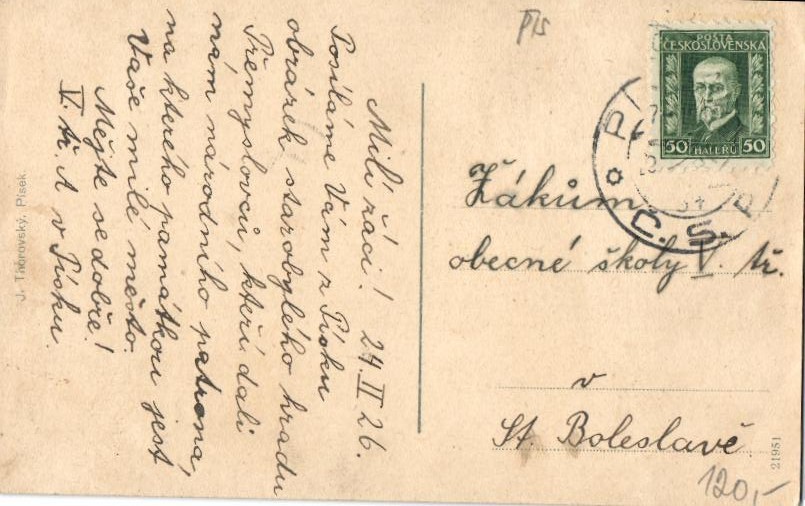 Milí žáci! 24. II 26.
Posíláme Vám z Písku
obrázek starobylého hradu
Přemyslovců, kteří dali
nám národního patrona,
na kterého památkou jest
Vaše milé město.
Mějte se dobře!
V. tř. A v Písku.
J. Thorovský, Písek.
Pís
POŠTA
ČESKOSLOVENSKÁ
50 HALÉŘŮ 50
Č. S. R.
Žákům
obecné školy V. tř.
v
St. Boleslavě
21951
120,-